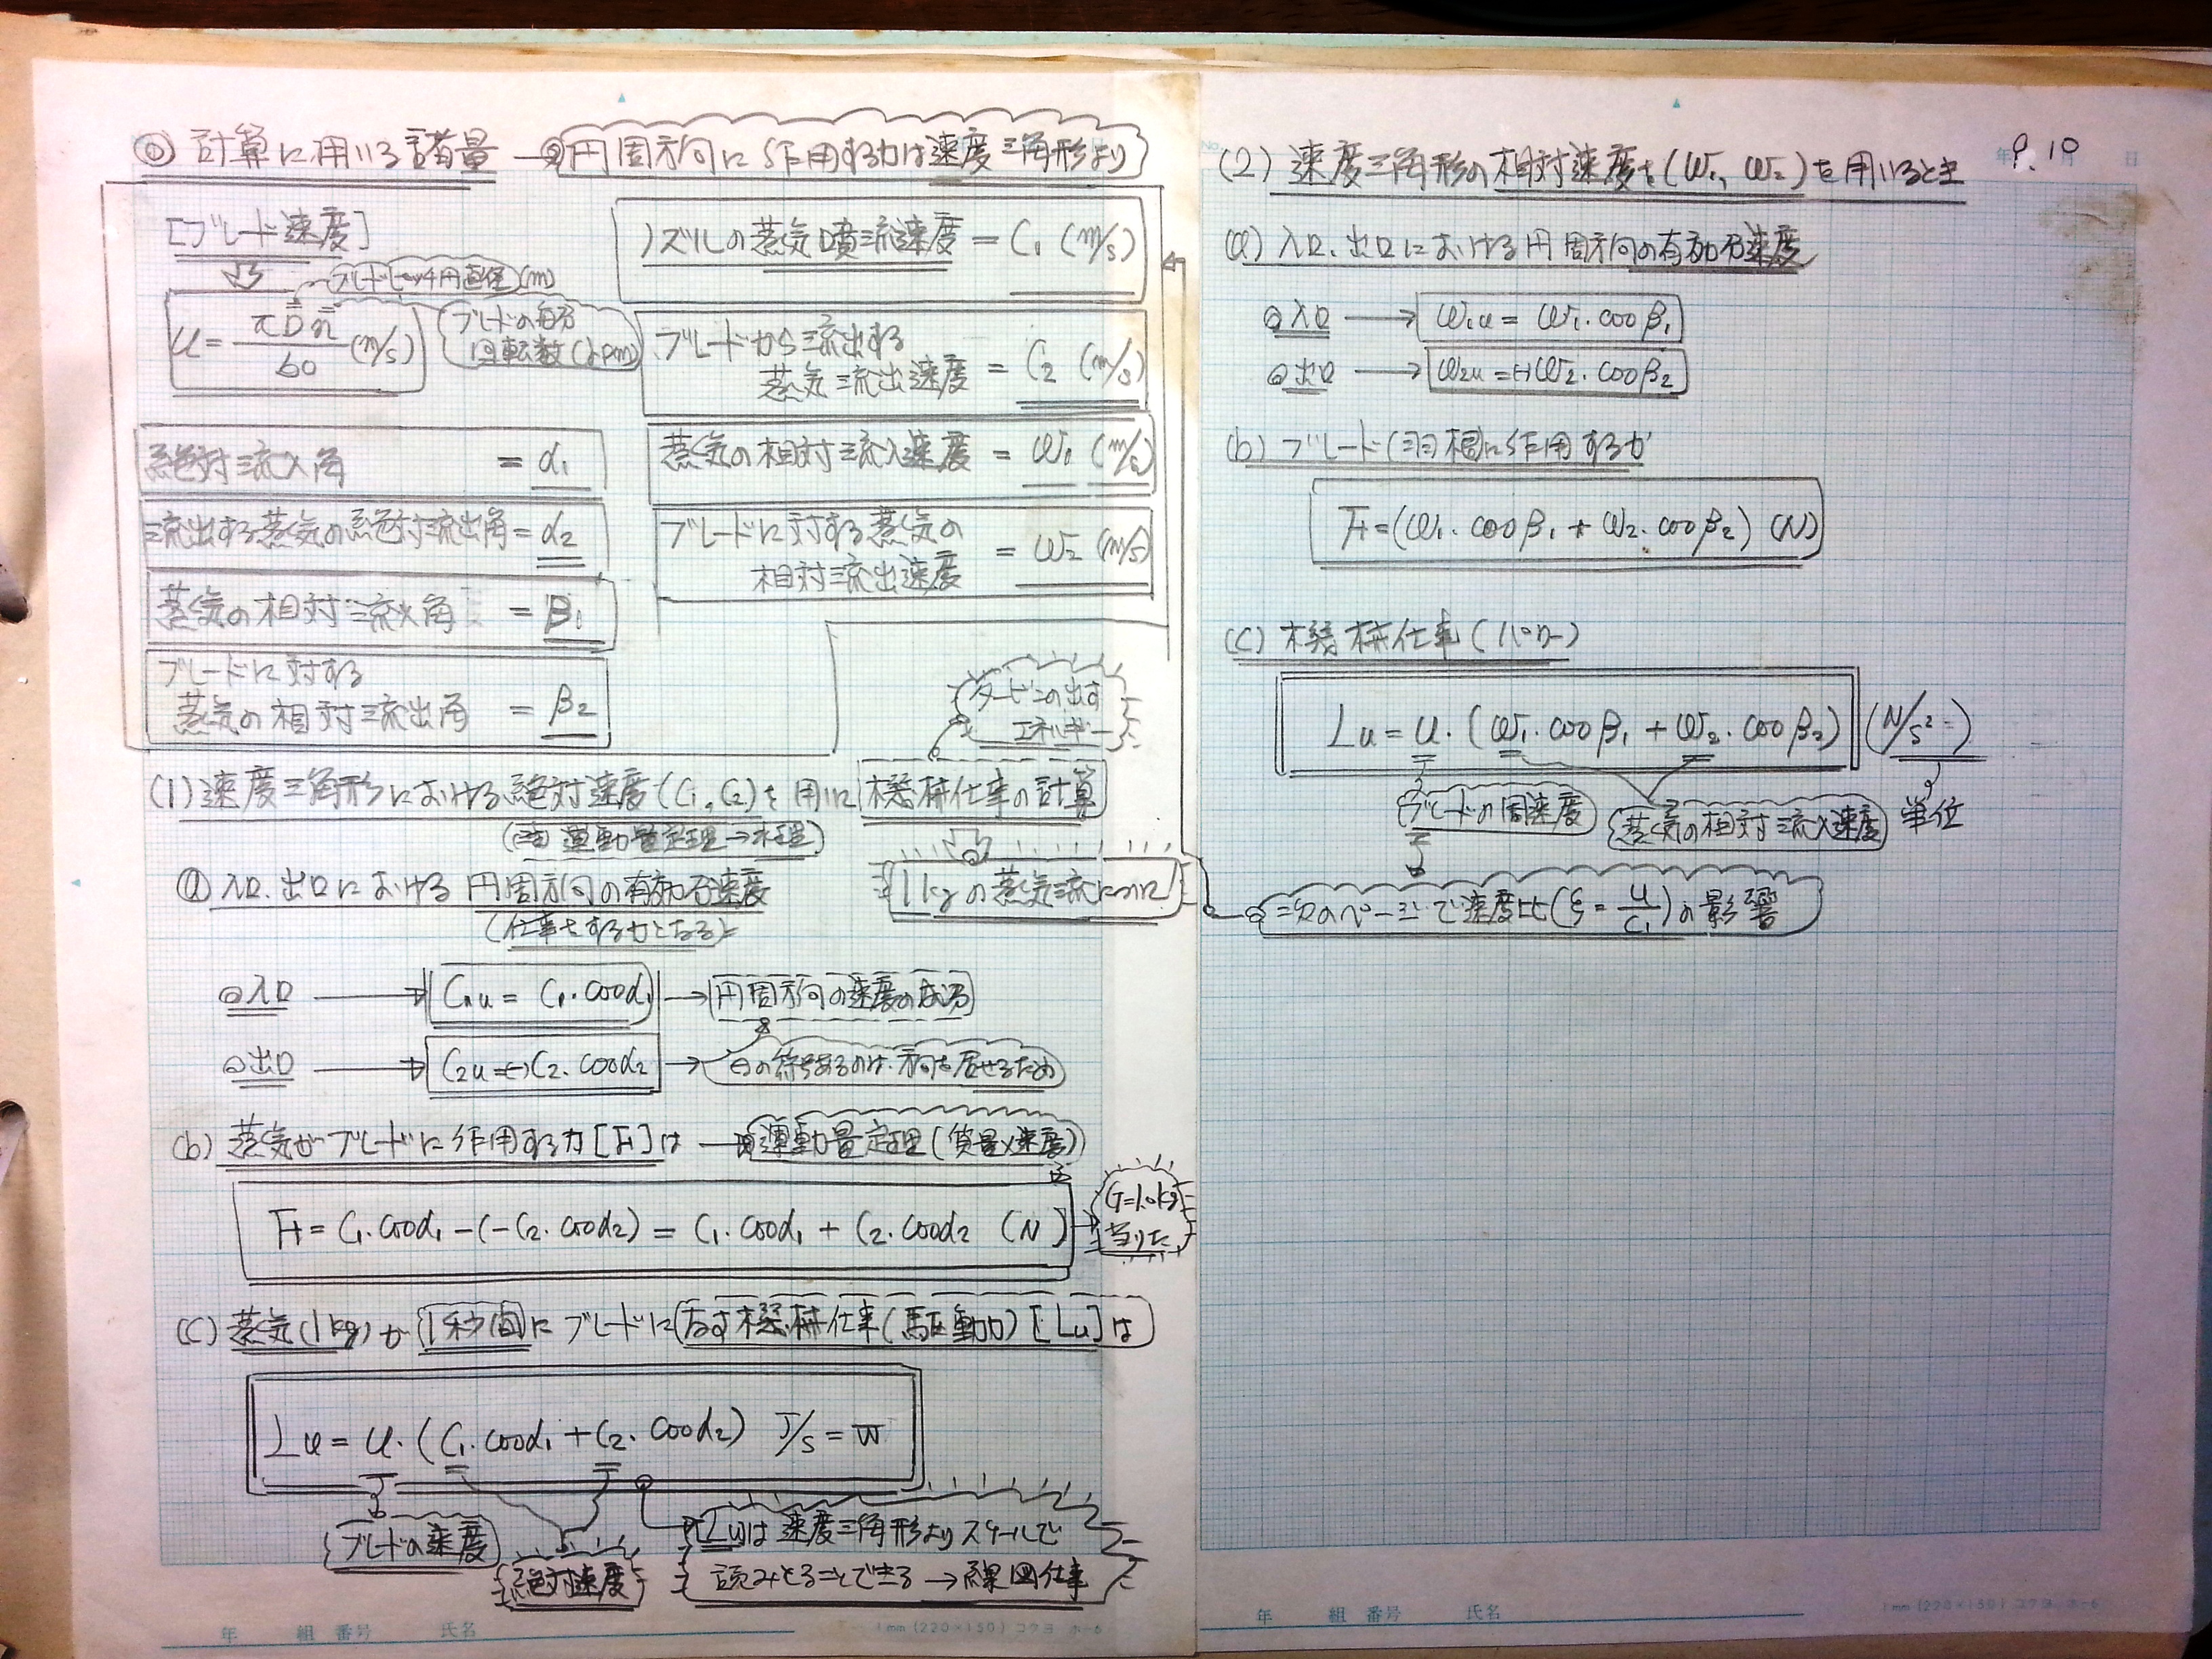 ◎ 計算に用いる諸量 → 円周方向に作用する力は速度三角形より
[ブレード速度]
ブレードピッチ円直径(m)
u = πDn/60 (m/s)
ブレードの毎分
回転数(rpm)
絶対流入角 = α₁
流出する蒸気の絶対流出角 = α₂
蒸気の相対流入角 = β₁
ブレードに対する
蒸気の相対流出角 = β₂
ノズルの蒸気噴流速度 = C₁ (m/s)
ブレードから流出する
蒸気流出速度 = C₂ (m/s)
蒸気の相対流入速度 = W₁ (m/s)
ブレードに対する蒸気の
相対流出速度 = W₂ (m/s)
タービンの出す
エネルギー
(1) 速度三角形における絶対速度(C₁, C₂)を用いた機械仕事の計算
運動量定理→
1kgの蒸気流について
ⓐ 入口.出口における円周方向の有効分速度
(仕事をする力となる)
◎入口 → C₁u = C₁・cosα₁ → 円周方向の速度の成分
◎出口 → C₂u = (-)C₂・cosα₂ → ⊖の符号あるのは.方向を
(b) 蒸気がブレードに作用する力[F]は → 運動量定理(質量×速度)
F = C₁・cosα₁ - (-C₂・cosα₂) = C₁・cosα₁ + C₂・cosα₂ (N)
G=1.0kg
当りた
(c) 蒸気(1kg)が1秒間にブレードに為す機械仕事(駆動力)[Lu]は
Lu = u・(C₁・cosα₁ + C₂・cosα₂) J/s = W
ブレードの速度
絶対速度
[Lu]は速度三角形よりスケールで
読みとることできる → 線図仕事
年 組 番号 氏名
1mm (220×150) コクヨ ホ-6
P.10
年 月 日
(2) 速度三角形の相対速度を(W₁, W₂)を用いるとき
(a) 入口.出口における円周方向の有効分速度
◎入口 → W₁u = W₁・cosβ₁
◎出口 → W₂u = (-)W₂・cosβ₂
(b) ブレード(羽根)に作用する力
F = (W₁・cosβ₁ + W₂・cosβ₂) (N)
(c) 機械仕事(パワー)
Lu = u・(W₁・cosβ₁ + W₂・cosβ₂)
単位
ブレードの周速度
蒸気の相対流入速度
次のページで速度比(ξ = u/C₁)の影響
年 組 番号 氏名
1mm (220×150) コクヨ ホ-6